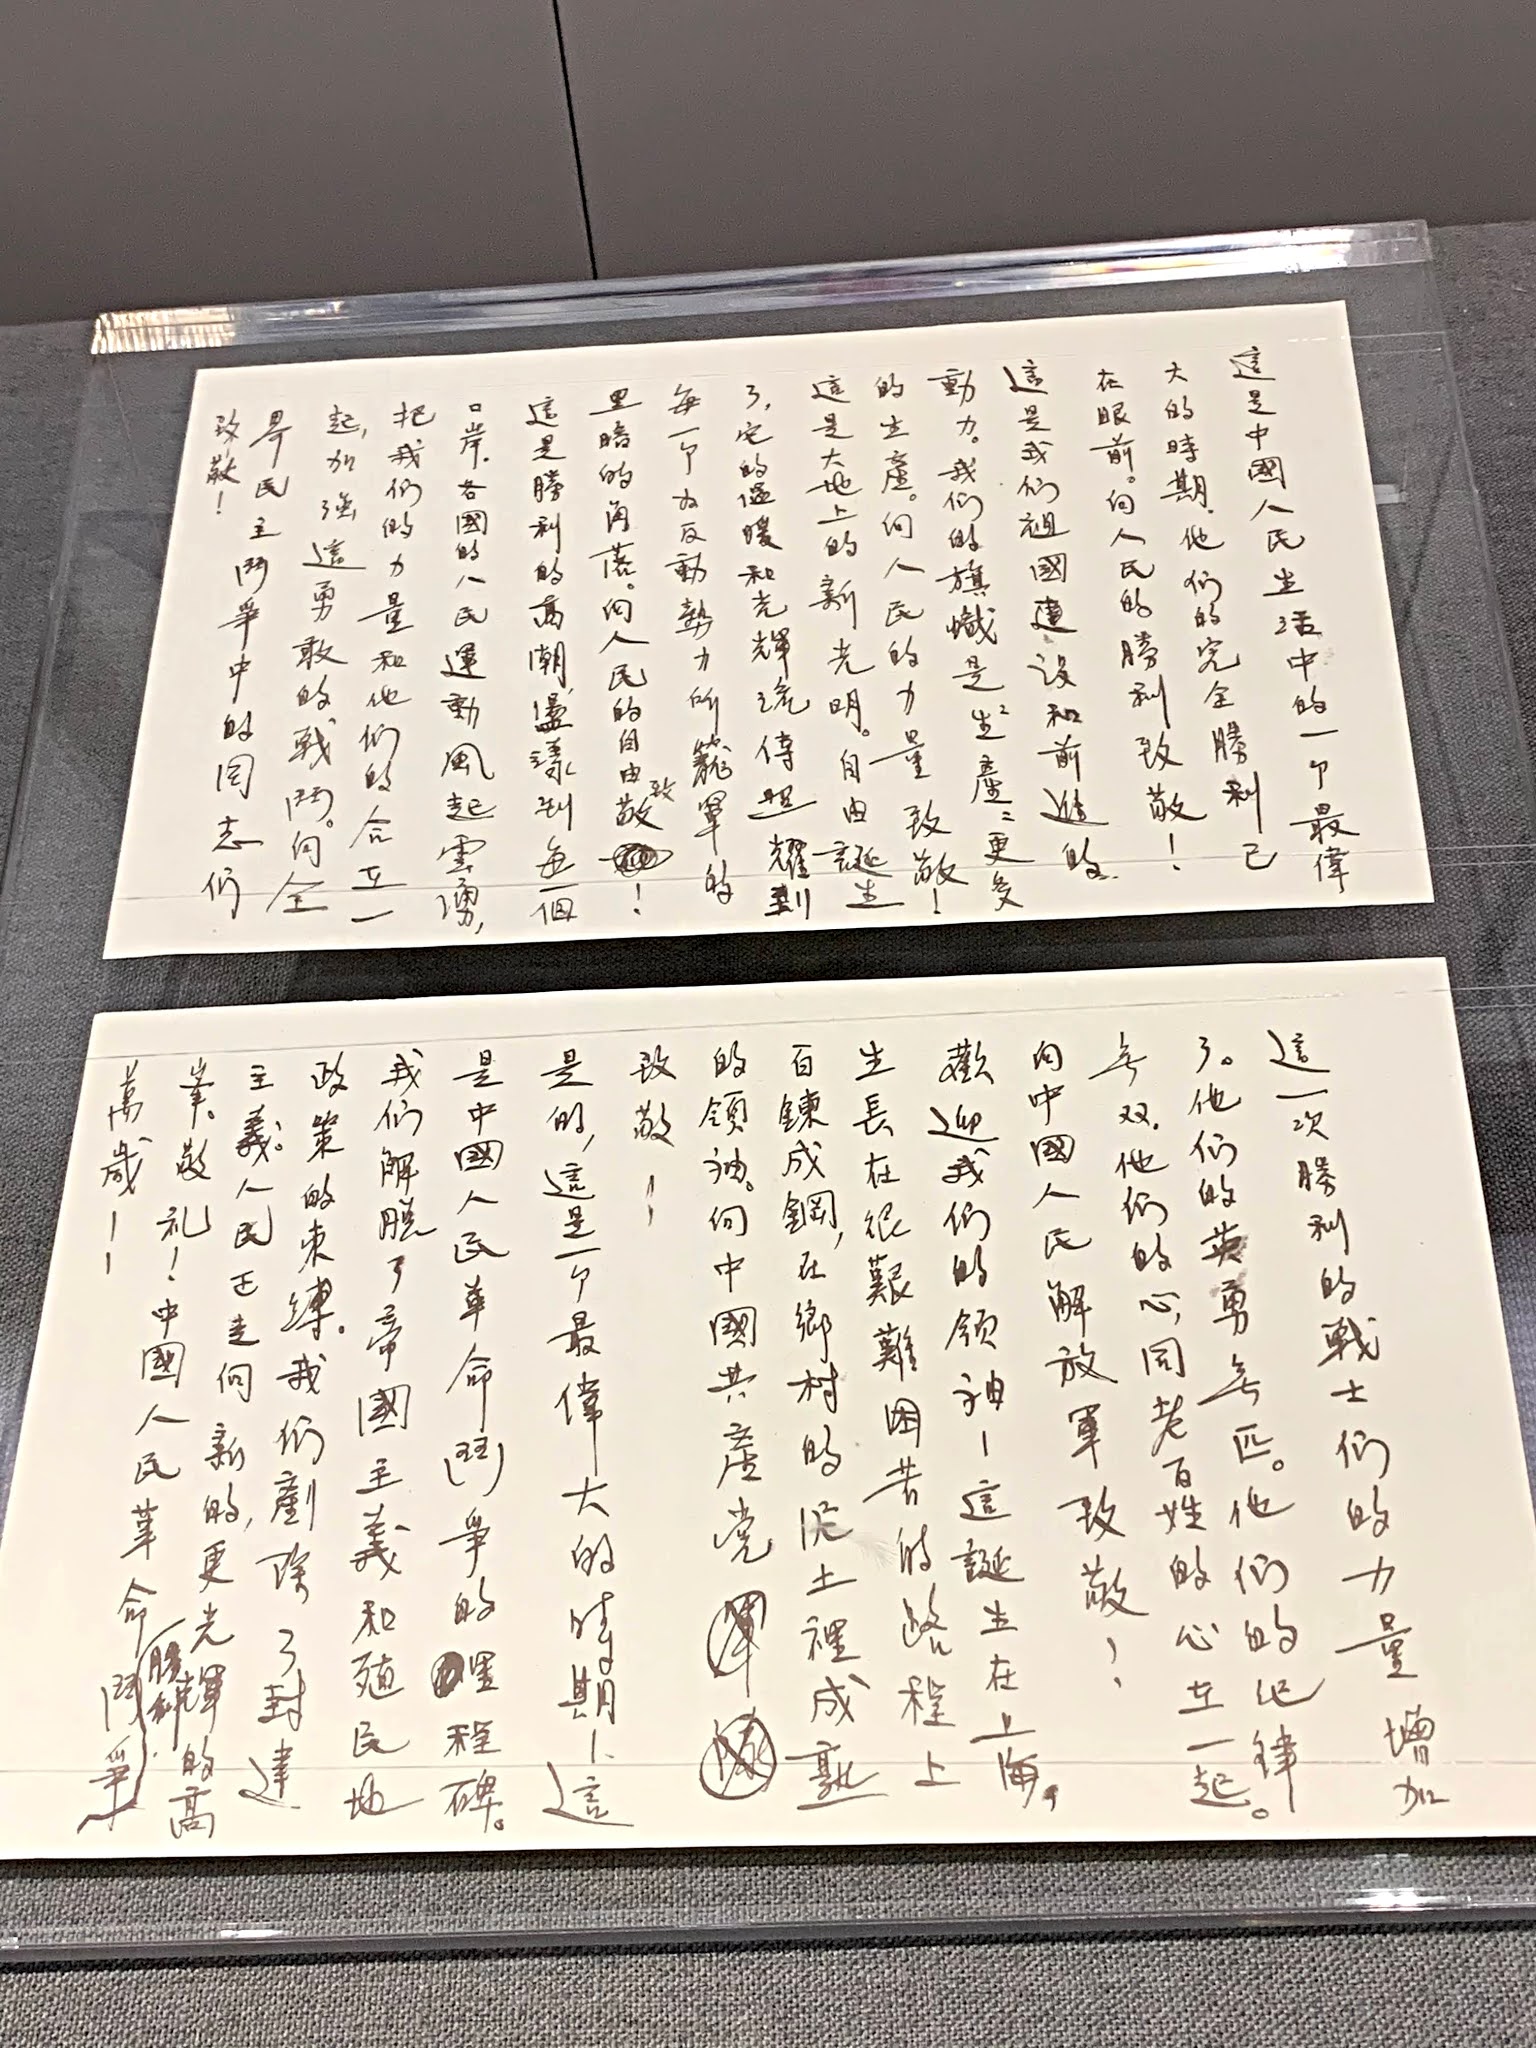 這是中國人民生活中的一个最偉
大的時期．他们的完全勝利已
在眼前。向人民的勝利致敬！
這是我们祖國建设和前進的
動力。我们的旗幟是"生產"更多
的生產。向人民的力量致敬！
這是大地上的新光明。自由誕生
了，它的温暖和光輝流傳照耀到
每一个为反動勢力所籠罩的
黑暗的角落。向人民的自由致敬！
這是勝利的高潮，盪漾到每一個
口岸．各國的人民運動風起雲湧，
把我们的力量和他们的合在一
起，加強這勇敢的戰鬥。向全
界民主鬥爭中的同志们
致敬！
這一次勝利的戰士们的力量增加
了。他们的英勇無匹。他们的纪律
無双．他们的心，同老百姓的心在一起。
向中國人民解放軍致敬！
歡迎我们的領袖—這誕生在上海，
生長在很艱難困苦的路程上
百鍊成鋼，在鄉村的泥土裡成熟
的領袖。向中國共產党
致敬！
是的，這是一个最偉大的時期—這
是中國人民革命鬥爭的里程碑。
我们解脫了帝國主義和殖民地
政策的束縛。我们剷除了封建
主義。人民正走向新的，更光輝的高
峯。敬礼！中國人民革命勝利
萬歲！